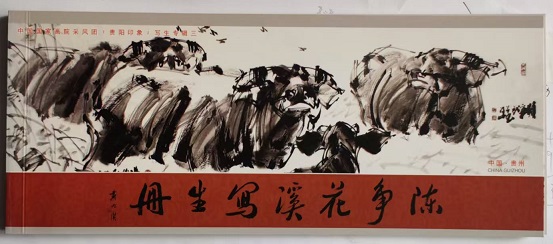 中国国家画院采风团·贵阳印象·写生专辑三
中国·贵州
CHINA·GUIZHOU
陈争花溪写生册